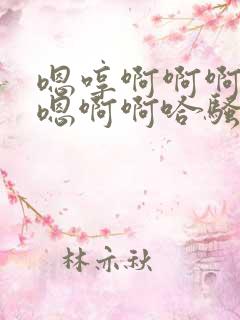 嗯哼啊啊啊
嗯啊啊哈骚
林亦秋